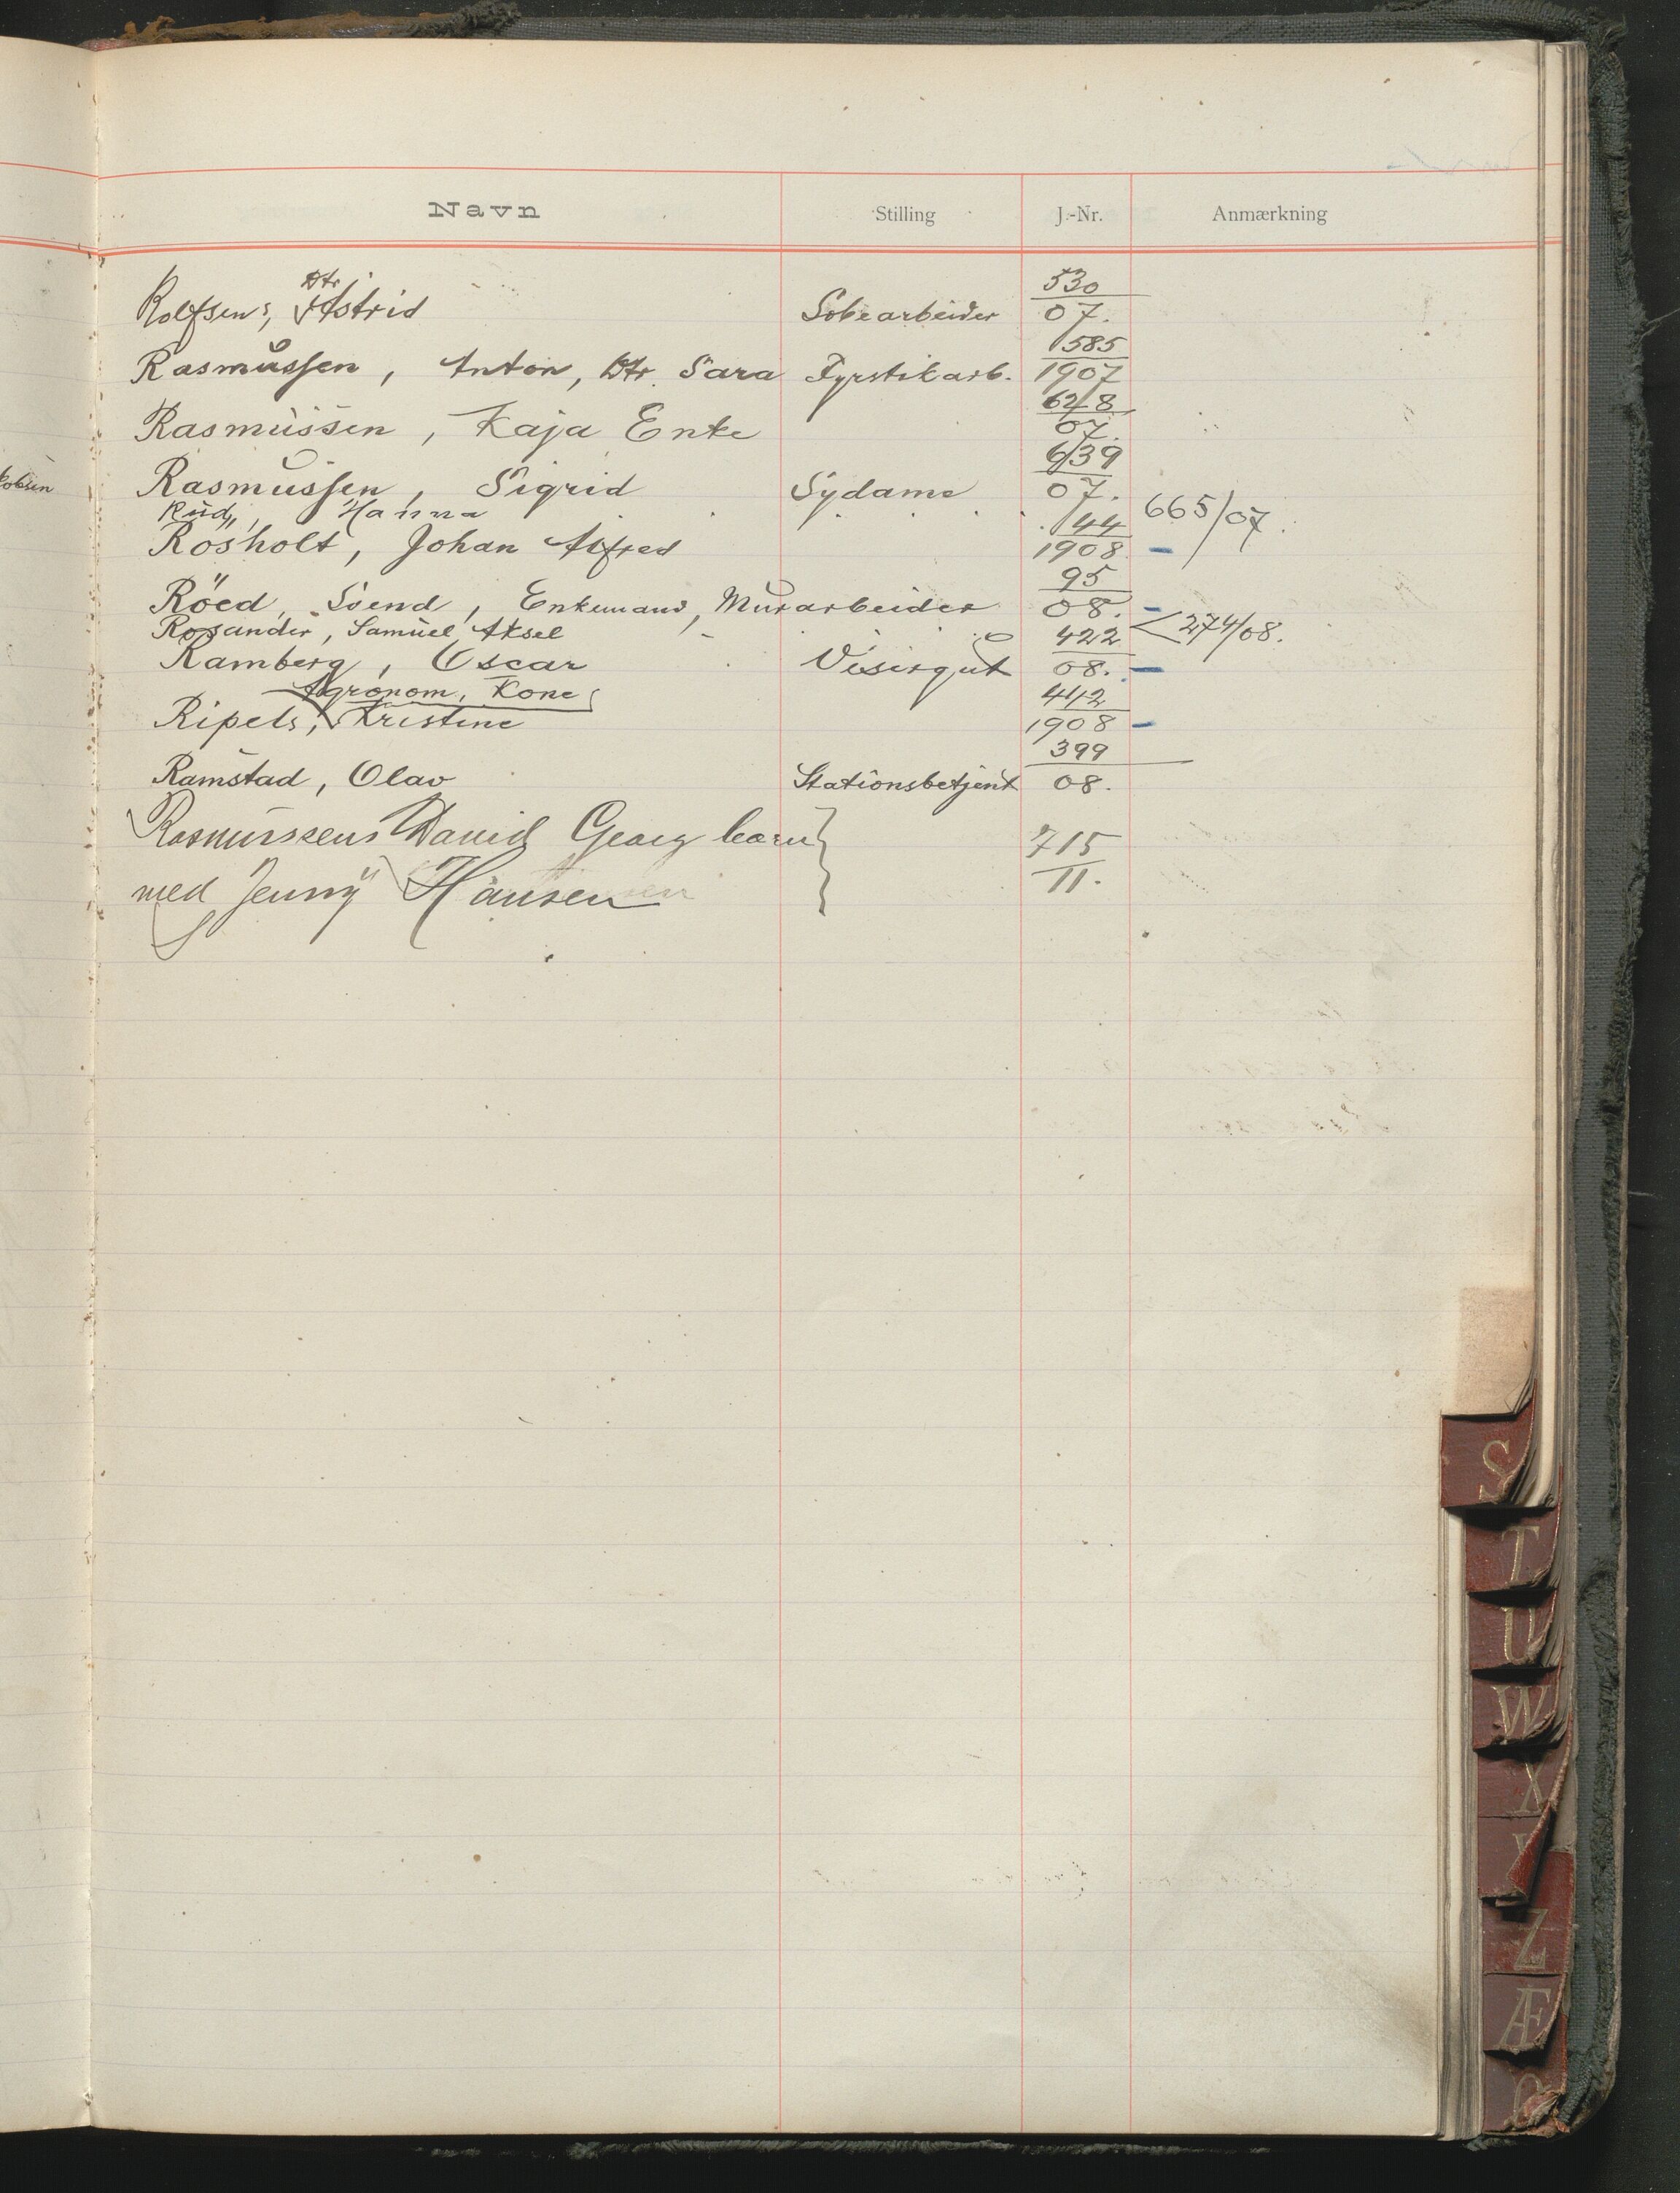 Navn Stilling J.-Nr. Anmærkning
Dtr 530
Rolfsens, Astrid 07.
585
Rasmussen, Anton, Dtr. Sara Fyrstikarb. 1907
628
Rasmussen, Kaja Enke 07.
639
Rasmussen, Sigrid Sydame 07.
Rud, Hanna 665/07.
144
Rosholt, Johan Alfred 1908 –
95
Röed, Svend, Enkemand, Murarbeider 08. –
Rosander, Samuel Aksel 274/08.
422
Ramberg, Oscar Visergut 08. –
Agronom, Kone 442
Ripels, Kristine 1908 –
399
Ramstad, Olav Stationsbetjent 08.
Rasmussens David Georg barn 715
med Jenny Hansen 11.
S
T
U
W
X
Y
Z
Æ